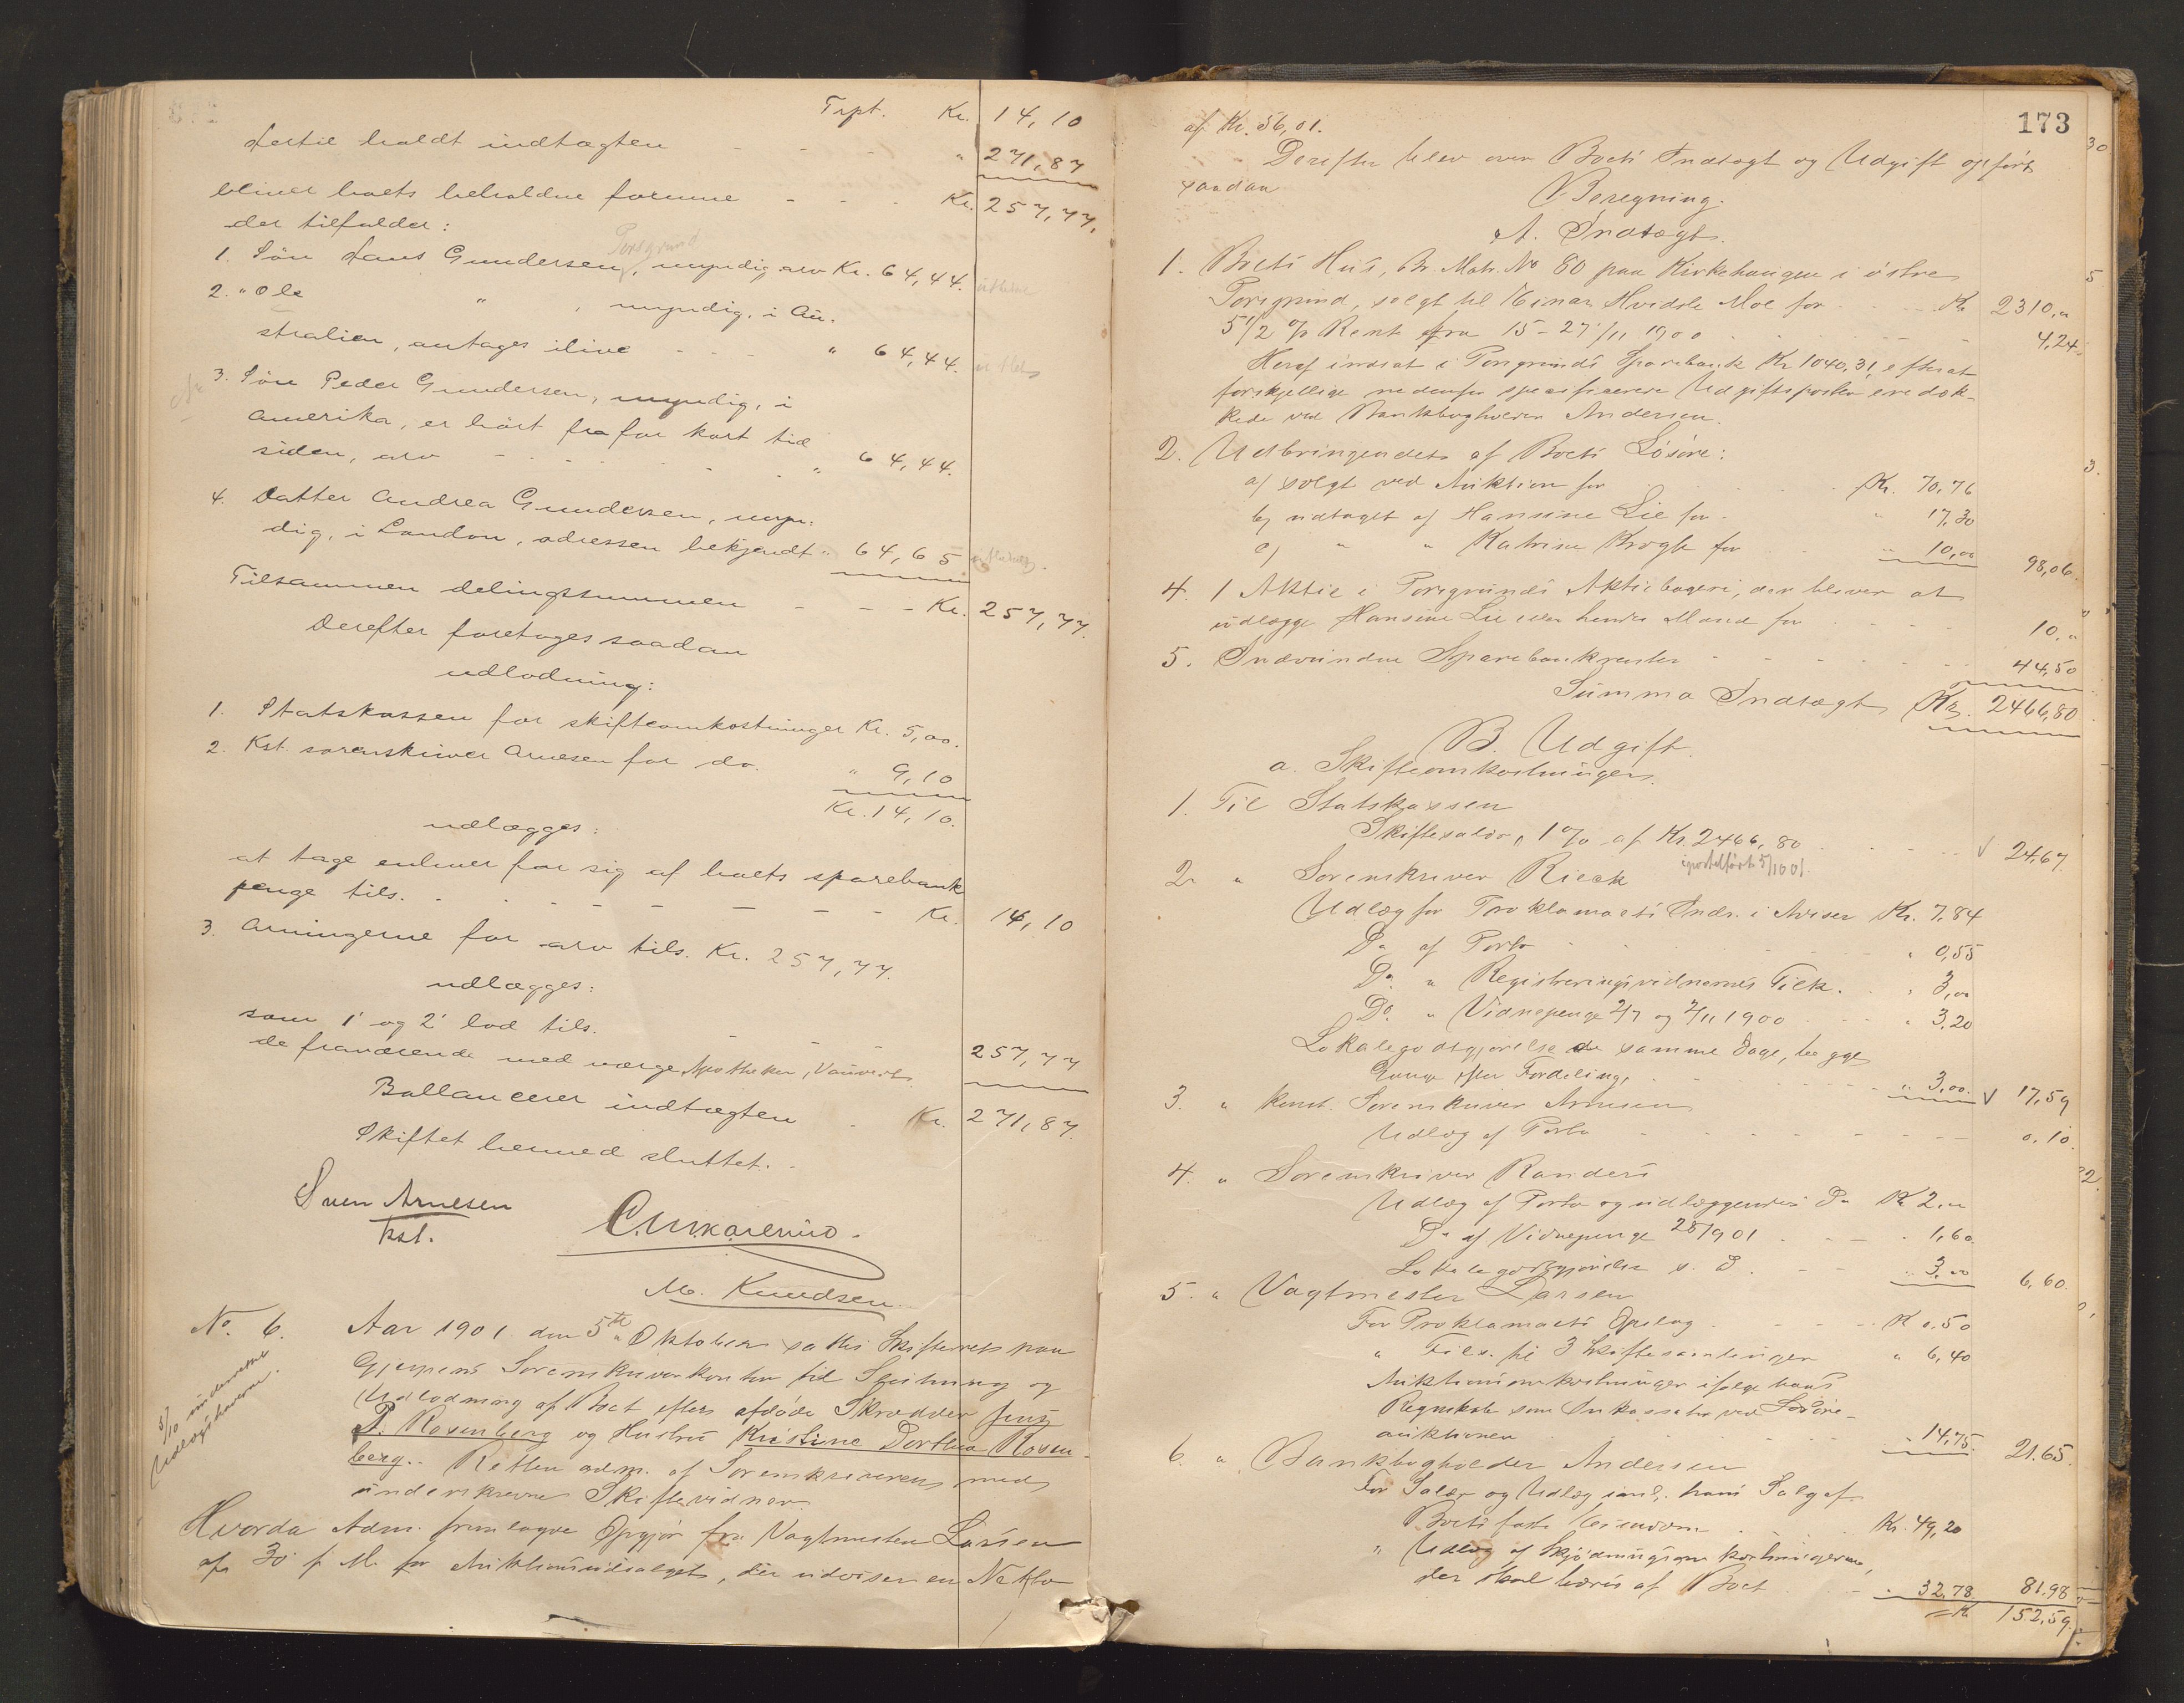 Trpt. Kr. 14,10
hertil holdt indtægten - - - " 271,87
bliver boets beholdne formue - - - Kr. 257,77,
der tilfalder:
Porsgrund
1. Søn Hans Gundersen, myndig arv Kr. 64,44.
2. " Ole " , myndig, i Au-
stralien, antages ilive - - - " 64,44.
3. Søn Peder Gundersen, myndig, i
Amerika, er hørt fra for kort tid
siden, arv - - - - " 64,44.
4. Datter Andrea Gundersen, myn-
dig, i London, adressen bekjendt " 64,65
Tilsammen delingssummen - - - Kr. 257,77.
Derefter foretages saadan
udlodning:
1. Statskassen for skifteomkostninger Kr. 5,00.
2. Kst. sorenskriver Arnesen for do. " 9,10
Kr. 14,10.
udlægges:
at tage enhver for sig af boets sparebank
penge tils. - - - - Kr. 14,10
3. Arvingerne for arv tils. Kr. 257,77.
udlægges:
som 1' og 2' lod tils.
de fraværende med værge Apotheker, Vauvert 257,77
Ballancerer indtægten - Kr. 271,87.
Skiftet hermed sluttet.
Sven Arnesen
kst.
M. Knudsen.
No. 6. Aar 1901 den 5te Oktober sattes Skifteret paa
Gjerpens Sorenskriverkontor til Slutning og
Udlodning af Boet efter afdøde Skrædder Jens
P. Rosenberg og Hustru Kristine Dorthea Rosen-
berg. Retten adm. af Sorenskriveren med
underskrevne Skiftevidner.
5/10 underrettet
Udlægshaverne.
Hvorda Adm. fremlagde Opgjør fra Vagtmester Larsen
af 30 f. M. for Auktionsudsalget, der udviser en Netto
173
af Kr. 56,01.
Derefter blev over Boets Indtægt og Udgift opført
saadan
Beregning.
A. Indtægt.
1. Boets Hus, Br. Matr. No 80 paa Kirkehaugen i østre
Porsgrund, solgt til Einar Hvidsle Moe for - - Kr 2310,"
5 1/2 % Rent fra 15-27/11 1900 - - 4,24
Heraf indsat i Porsgrunds Sparebank Kr 1040,31, efterat
forskjellige nedenfor specificerede Udgiftsposter ere dæk-
kede ved Bankbogholder Andersen.
2. Udbringendet af Boets Løsøre:
a) solgt ved Auktion for - - Kr. 70,76
b) udtaget af Hansine Lie for - " 17,30
c) " " Katrine Krogh for - " 10,00 98,06.
4. 1 Aktie i Porsgrunds Aktiebageri, der bliver at
udlægge Hansine Lie eller hendes Mand for - - 10."
5. Indvundne Sparebankrenter - - - - 44,50
Summa Indtægt Kr. 2466,80
B. Udgift.
a. Skifteomkostninger.
1. Til Statskassen
Skiftesalær, 1 % af Kr. 2466,80 - - √ 24,67.
2. " Sorenskriver Rieck
Udlæg for Proklamaets Indr. i Aviser Kr. 7.84
Do af Porto - - " 0,55
Do. " Registreringsvidnernes Tilk. - " 3,00
Do. " Vidnepenge 2/7 og 7/11 1900 - - " 3.20
Lokalegodtgjørelse de samme Dage, begge
Gange efter Fordeling, - - " 3,00. √ 17,59
3. " Konst. Sorenskriver Arnesen
Udlæg af Porto - - - - 0.10.
4. " Sorenskriver Randers
Udlæg af Porto og udlæggendes Do Kr 2."
Do af Vidnepenge 28/9 01 - - - 1,60
Lokalegodtgjørelse s. D. - - " 3,00 6,60.
5. " Vagtmester Larsen
For Proklamaets Opslag - - Kr 0.50
" Tils. til 3 Skiftesamlinger " 6,40
Auktionsomkostninger ifølge hans
Regnskab som Inkassator ved Løsøre-
auktionen - - " 14,75. 21.65.
6. " Bankbogholder Andersen
For Salær og Udlæg i anl. hans Salg af
Boets faste Eiendom - - Kr. 49,20
" Udlæg af Skjødningsomkostningerne,
der skal bæres af Boet - - " 32,78 81,98
Kr 152,59